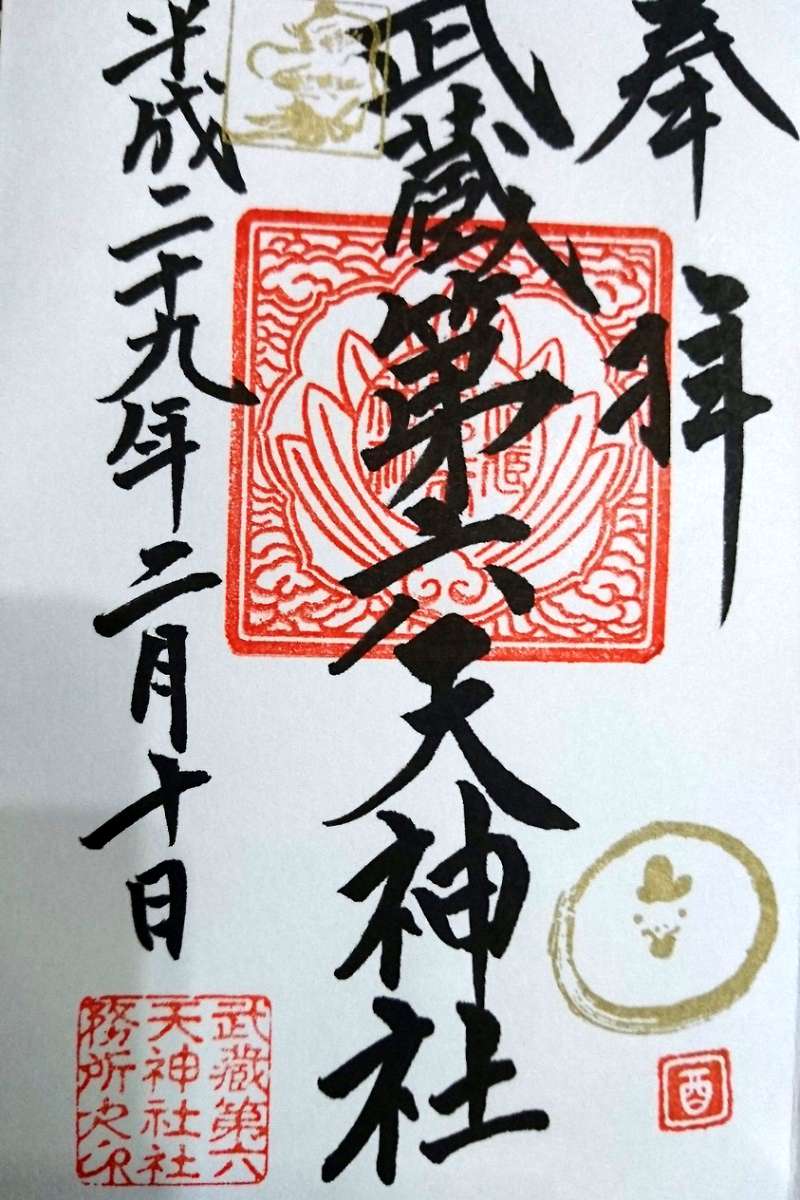 奉拝
武蔵第六天神社
平成二十九年二月十日
酉
武蔵第六
天神社社
務所之印